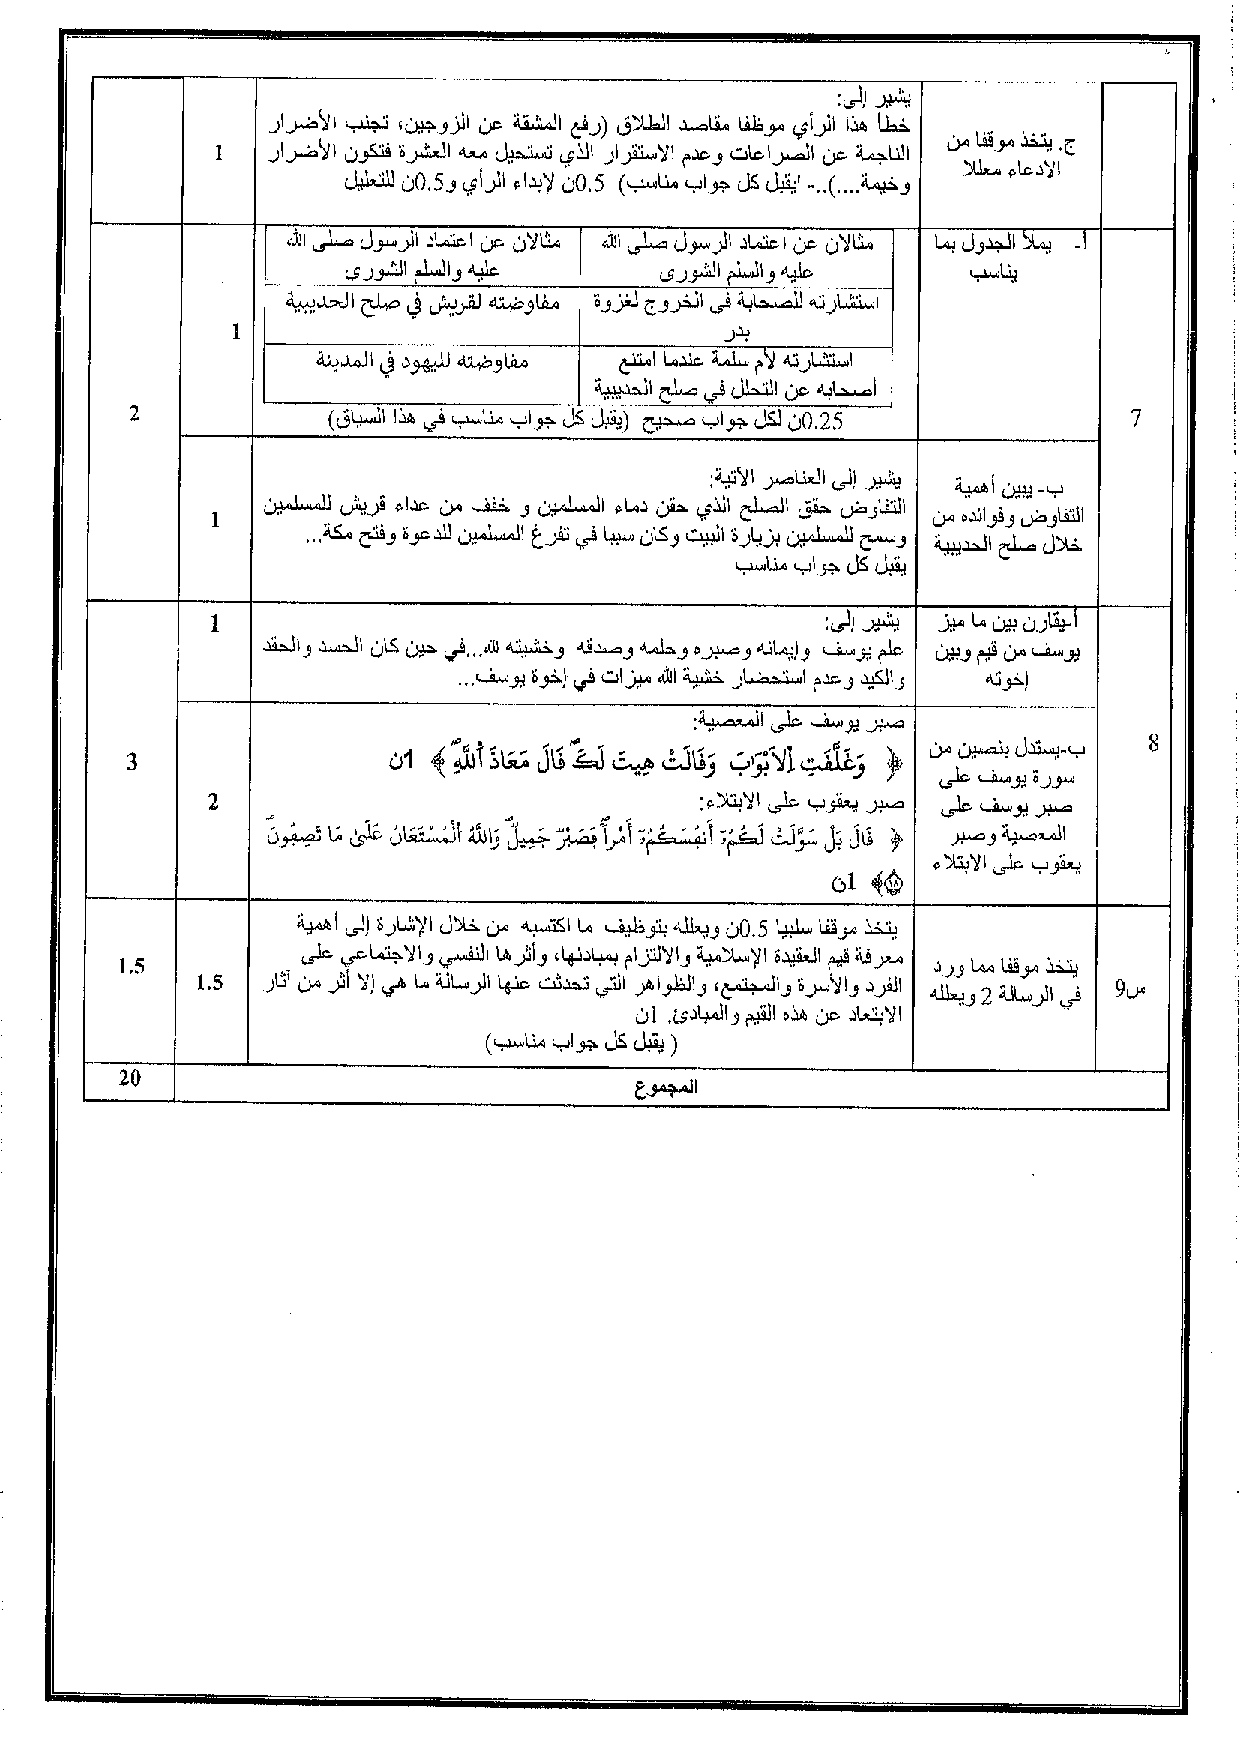 ج. يتخذ موقفا من
الادعاء معللا
يشير إلى:
خطأ هذا الرأي موظفا مقاصد الطلاق (رفع المشقة عن الزوجين، تجنب الأضرار
الناجمة عن الصراعات وعدم الاستقرار الذي تستحيل معه العشرة فتكون الأضرار
وخيمة....)..- يقبل كل جواب مناسب) 0.5ن لإبداء الرأي و0.5ن للتعليل
1
7
أ- يملأ الجدول بما
يناسب
مثالان عن اعتماد الرسول صلى الله
عليه والسلم الشورى
مثالان عن اعتماد الرسول صلى الله
عليه والسلم الشورى
استشارته للصحابة في الخروج لغزوة
بدر
مفاوضته لقريش في صلح الحديبية
استشارته لأم سلمة عندما امتنع
أصحابه عن التحلل في صلح الحديبية
مفاوضته لليهود في المدينة
0.25ن لكل جواب صحيح (يقبل كل جواب مناسب في هذا السياق)
1
2
ب- يبين أهمية
التفاوض وفوائده من
خلال صلح الحديبية
يشير إلى العناصر الآتية:
التفاوض حقق الصلح الذي حقن دماء المسلمين و خفف من عداء قريش للمسلمين
وسمح للمسلمين بزيارة البيت وكان سببا في تفرغ المسلمين للدعوة وفتح مكة...
يقبل كل جواب مناسب
1
8
أ-يقارن بين ما ميز
يوسف من قيم وبين
إخوته
يشير إلى:
علم يوسف وإيمانه وصبره وحلمه وصدقه وخشيته لله...في حين كان الحسد والحقد
والكيد وعدم استحضار خشية الله ميزات في إخوة يوسف...
1
ب-يستدل بنصين من
سورة يوسف على
صبر يوسف على
المعصية وصبر
يعقوب على الابتلاء
صبر يوسف على المعصية:
﴿ وَغَلَّقَتِ اِلَابْوَابَ وَقَالَتْ هِيتَ لَكَۖ قَالَ مَعَاذَ اَللَّهِۖ ﴾ 1ن
صبر يعقوب على الابتلاء:
﴿ قَالَ بَلْ سَوَّلَتْ لَكُمْۥٓ أَنفُسُكُمْۥٓ أَمْراٗۖ فَصَبْرٞ جَمِيلٞۖ وَاللَّهُ اُلْمُسْتَعَانُ عَلَىٰ مَا تَصِفُونَۖ
١٨﴾ 1ن
2
3
س9
يتخذ موقفا مما ورد
في الرسالة 2 ويعلله
يتخذ موقفا سلبيا 0.5ن ويعلله بتوظيف ما اكتسبه من خلال الإشارة إلى أهمية
معرفة قيم العقيدة الإسلامية والالتزام بمبادئها، وأثرها النفسي والاجتماعي على
الفرد والأسرة والمجتمع، والظواهر التي تحدثت عنها الرسالة ما هي إلا أثر من آثار
الابتعاد عن هذه القيم والمبادئ. 1ن
( يقبل كل جواب مناسب)
1.5
1.5
المجموع
20